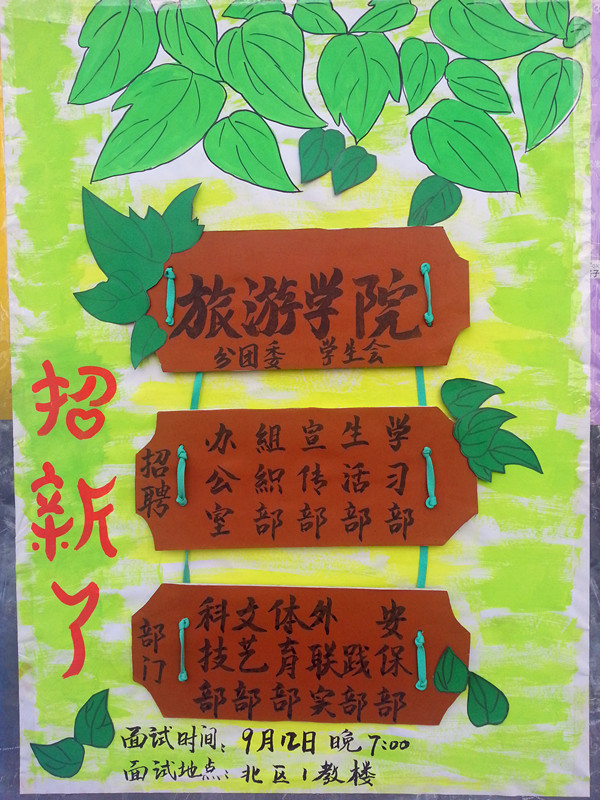 招新了
旅游学院
分团委 学生会
招聘
办公室
組織部
宣传部
生活部
学习部
部门
科技部
文艺部
体育部
外联实
践部
安保部
面试时间：9月12日 晚7:00
面试地点：北区1教楼